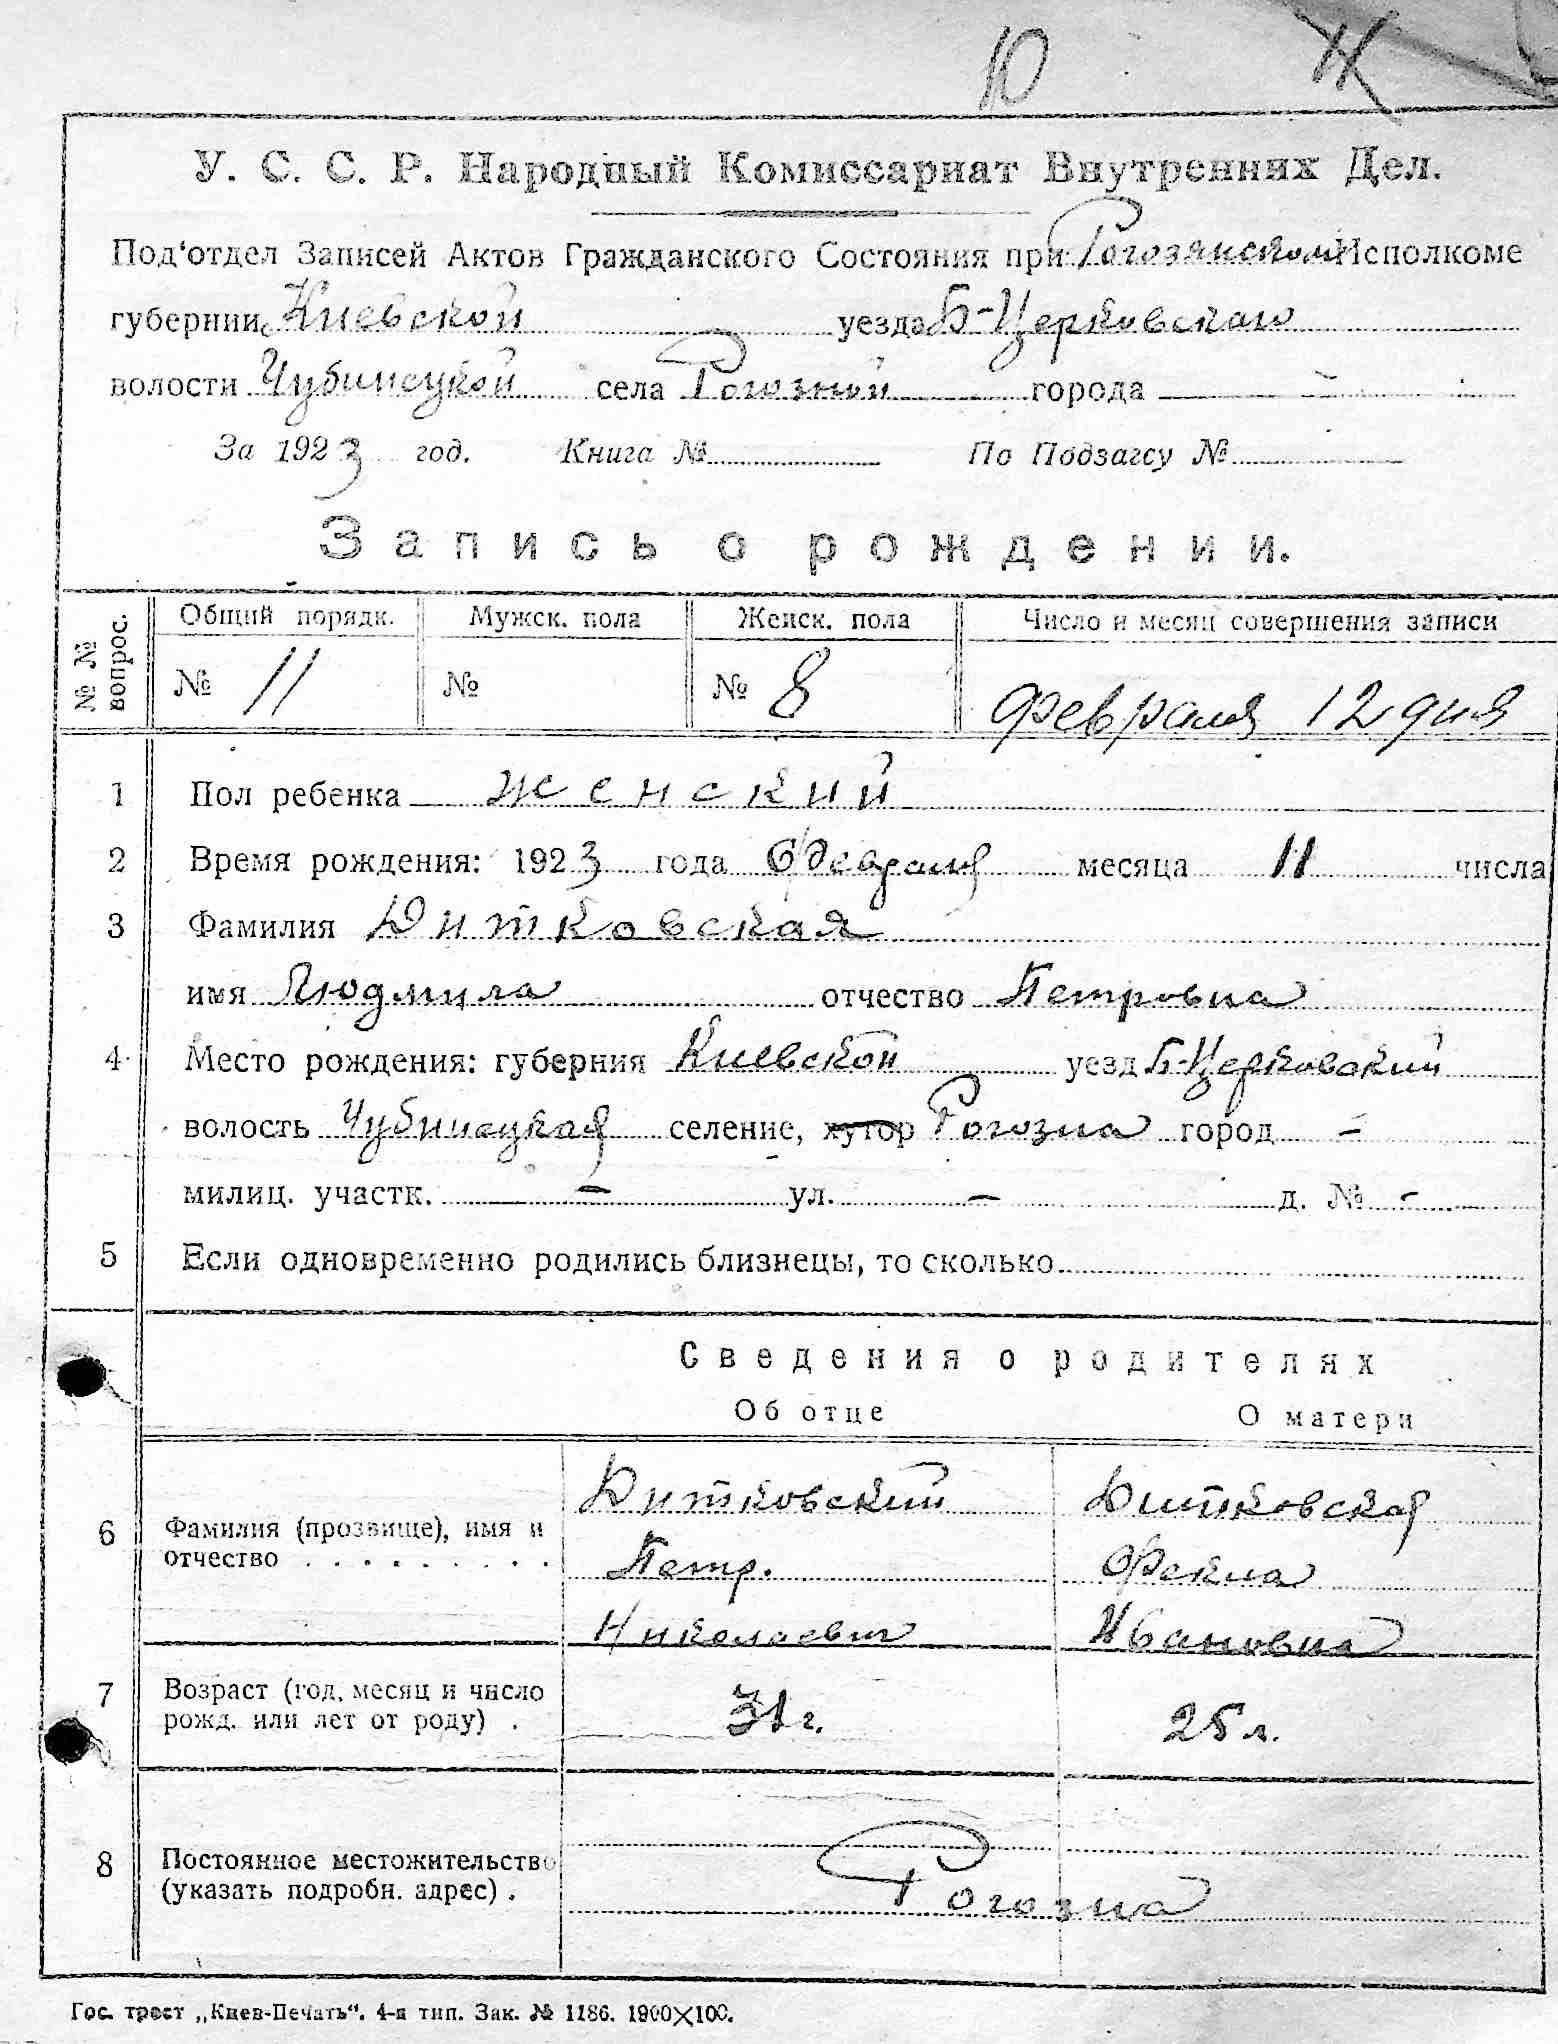 Ю Ж
У. С. С. Р. Народный Комиссариат Внутренних Дел.
Под‘отдел Записей Актов Гражданского Состояния при Рогозянском Исполкоме
губернии Киевской уезда Б-Церковскаго
волости Чубинецкой села Рогозной города —
За 1923 год. Книга № По Подзагсу №
Запись о рождении.
№ № вопрос. Общий порядк. Мужск. пола Женск. пола Число и месяц совершения записи
№ 11 № № 8 февраля 12 дня
1 Пол ребенка женский
2 Время рождения: 1923 года февраля месяца 11 числа
3 Фамилия Дитковская
имя Людмила отчество Петровна
4 Место рождения: губерния Киевской уезд Б-Церковский
волость Чубинецкая селение, хутор Рогозна город -
милиц. участк. - ул. - д. № -
5 Если одновременно родились близнецы, то сколько
Сведения о родителях
Об отце О матери
Дитковский Дитковская
6 Фамилия (прозвище), имя и отчество . . . . . . . . . Петр. Фекла
Николаевич Ивановна
7 Возраст (год, месяц и число рожд. или лет от роду) . 31 г. 25 л.
8 Постоянное местожительство (указать подробн. адрес) . Рогозна
Гос. трест „Киев-Печать“. 4-я тип. Зак. № 1186. 1900×100.